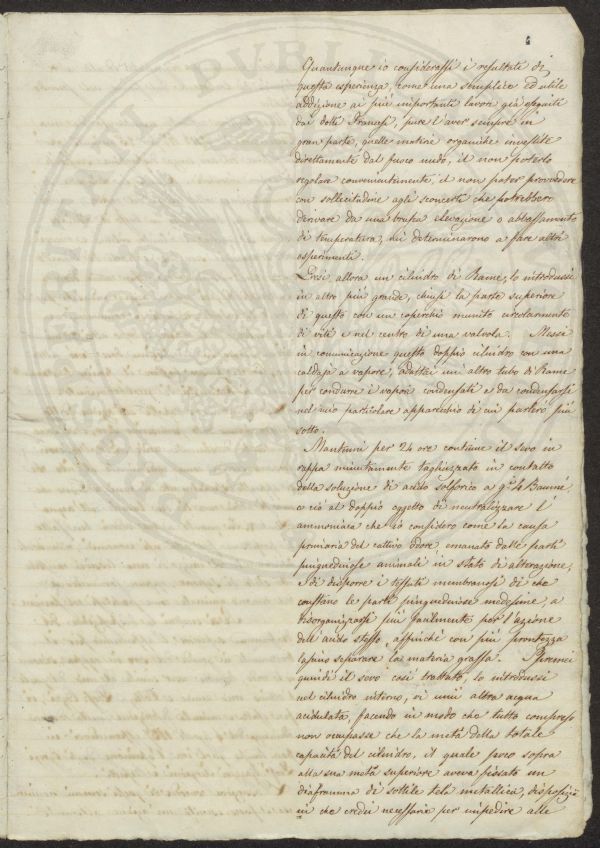 4
Quantunque io considerassi i resultati di
questa esperienza, come una semplice ed utile
addizione ai più importanti lavori già eseguiti
dai dotti Francesi, pure l'aver sempre in
gran parte, quelle materie organiche investite
direttamente dal fuoco nudo, il non poterlo
regolare convenientemente, il non poter provvedere
con sollecitudine agli sconcerti che potrebbero
derivare da una brusca elevazione o abbassamento
di temperatura, mi determinarono a fare altri
esperimenti.
Presi allora un cilindro di Rame, lo introdussi
in altro più grande, chiusi la parte superiore
di questo con un coperchio munito circolarmente
di viti e nel centro di una valvola. Messi
in comunicazione questo doppio cilindro con una
caldaja a vapore, adattai un altro tubo di Rame
per condurre i vapori condensati e da condensarsi
nel mio particolare apparecchio di cui parlerò più
sotto.
Mantenni per 24 ore continue il sevo in
rappa minutamente tagliuzzato in contatto
della soluzione di acido solforico a g.i 4 Baumé,
e ciò al doppio oggetto di neutralizzare l'
ammoniaca che io considero come la causa
primaria del cattivo odore, emanato dalle parti
pinguedinose animali in stato di alterazione,
e di disporre i tessuti membranosi di che
constano le parti pinguedinose medesime, a
disorganizzarsi più facilmente per l'azione
dell'acido stesso, affinché con più prontezza
lascino separare la materia grassa. Spremei
quindi il sevo così trattato, lo introdussi
nel cilindro interno, vi unii altra acqua
acidulata, facendo in modo che tutto compreso
non occupasse che la metà della totale
capacità del cilindro, il quale poco sopra
alla sua metà superiore aveva fissato un
diaframma di sottile tela metallica, disposizio
ni che credei necessarie per impedire alle